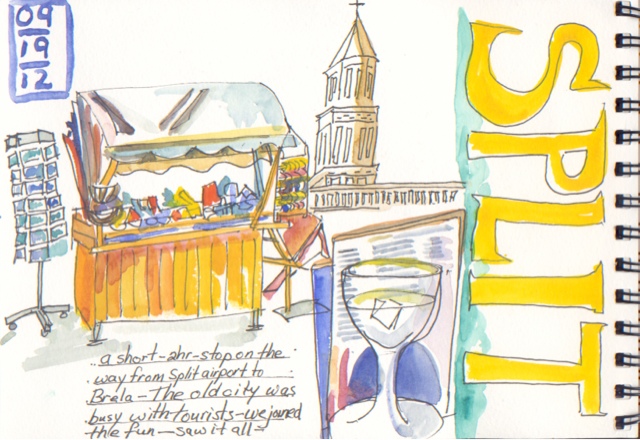 09
19
12
SPLIT
a short-2hr-stop on the
way from Split airport to
Brela-The old city was
busy with tourists-we joined
the fun-saw it all-